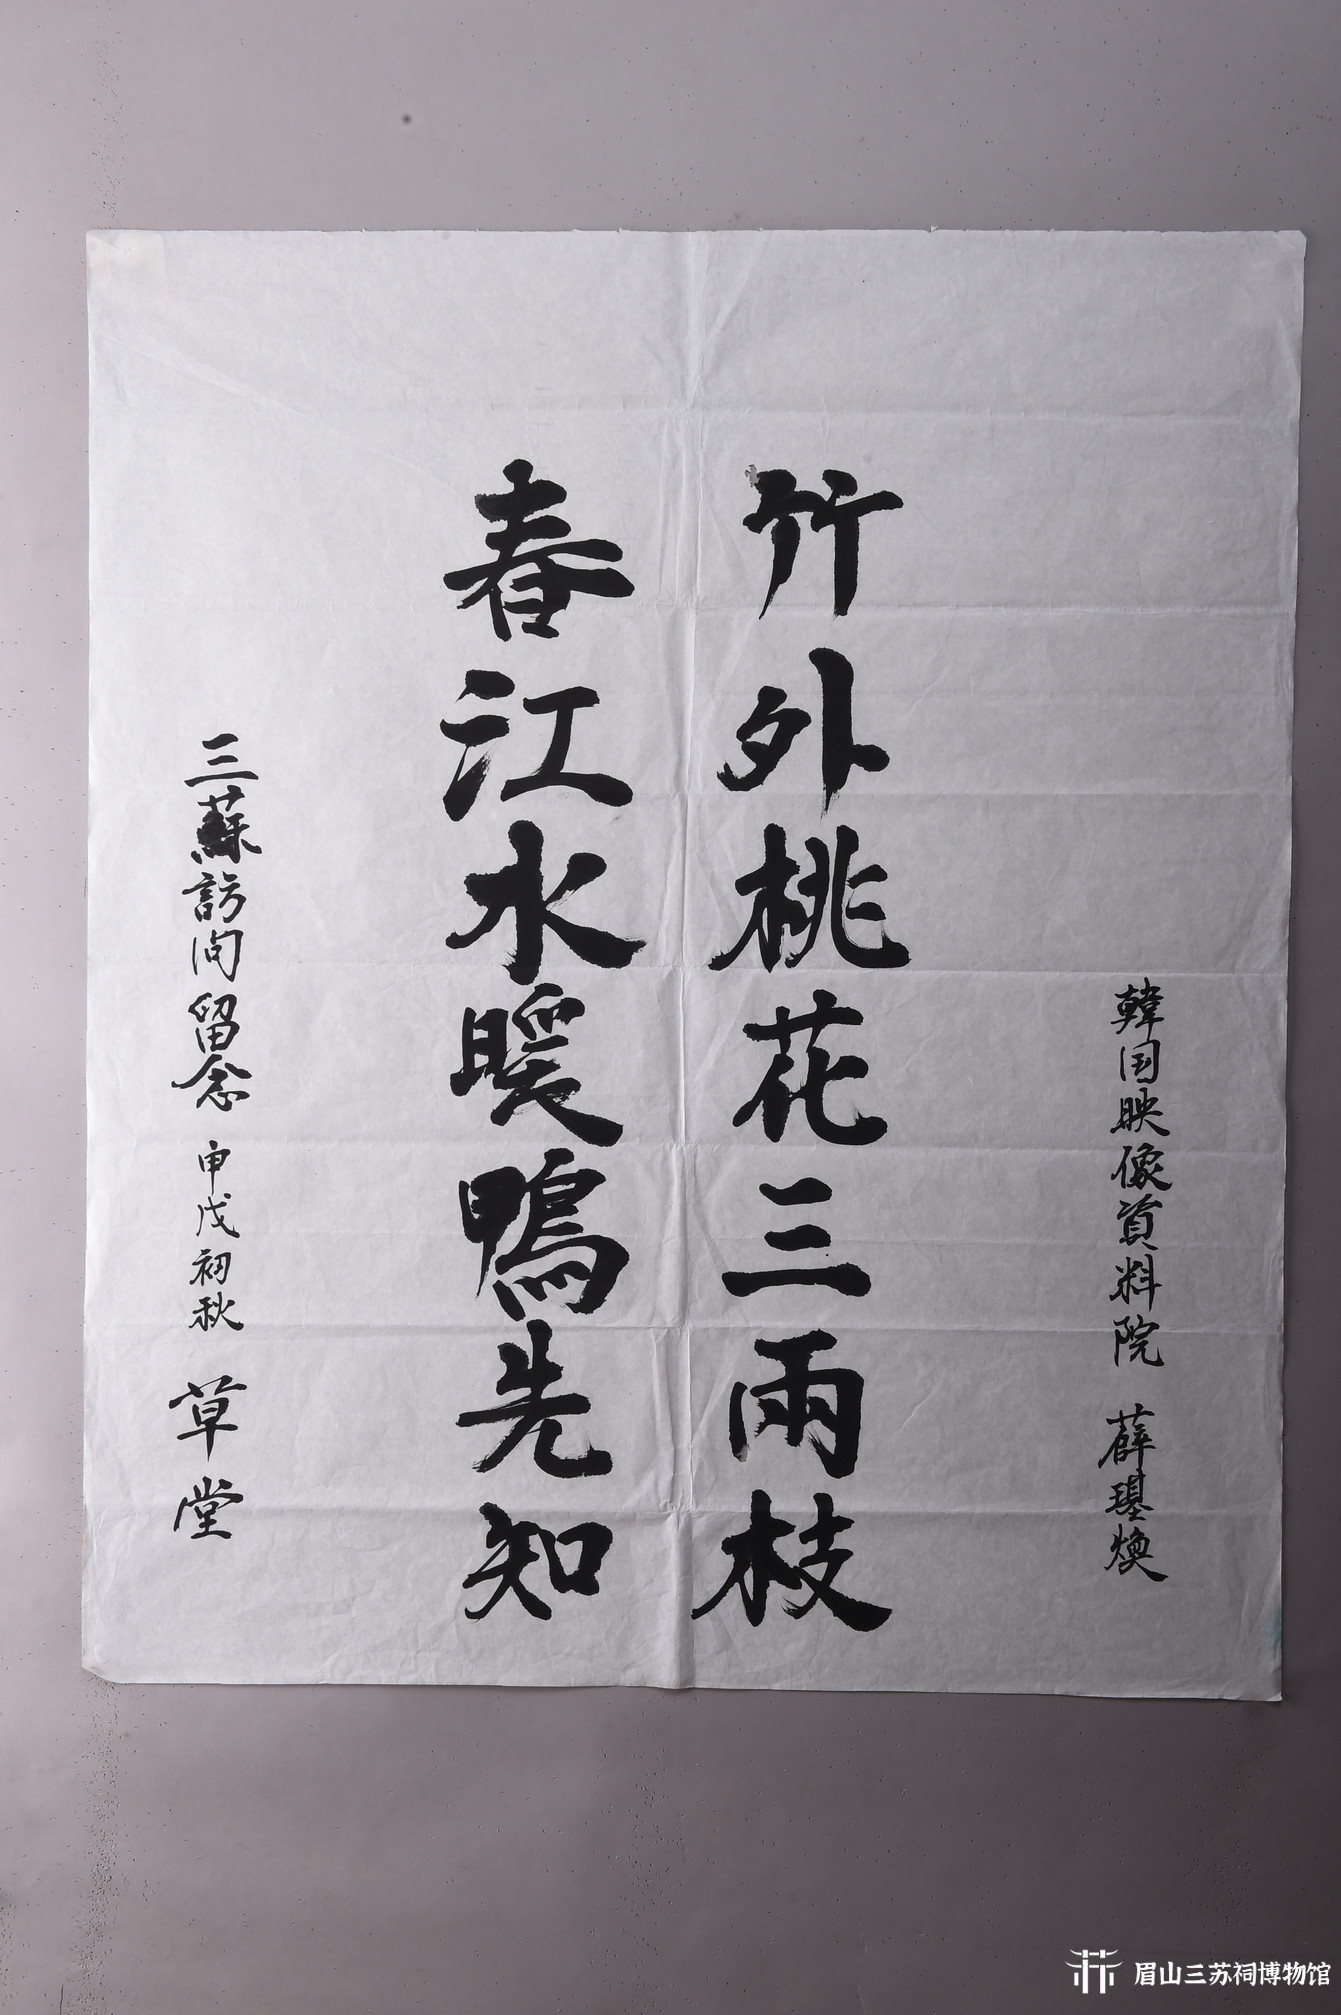 韓国映像資料院 薛璂煥
竹外桃花三兩枝
春江水暖鴨先知
三蘇訪问留念 申戌初秋 草堂
眉山三苏祠博物馆